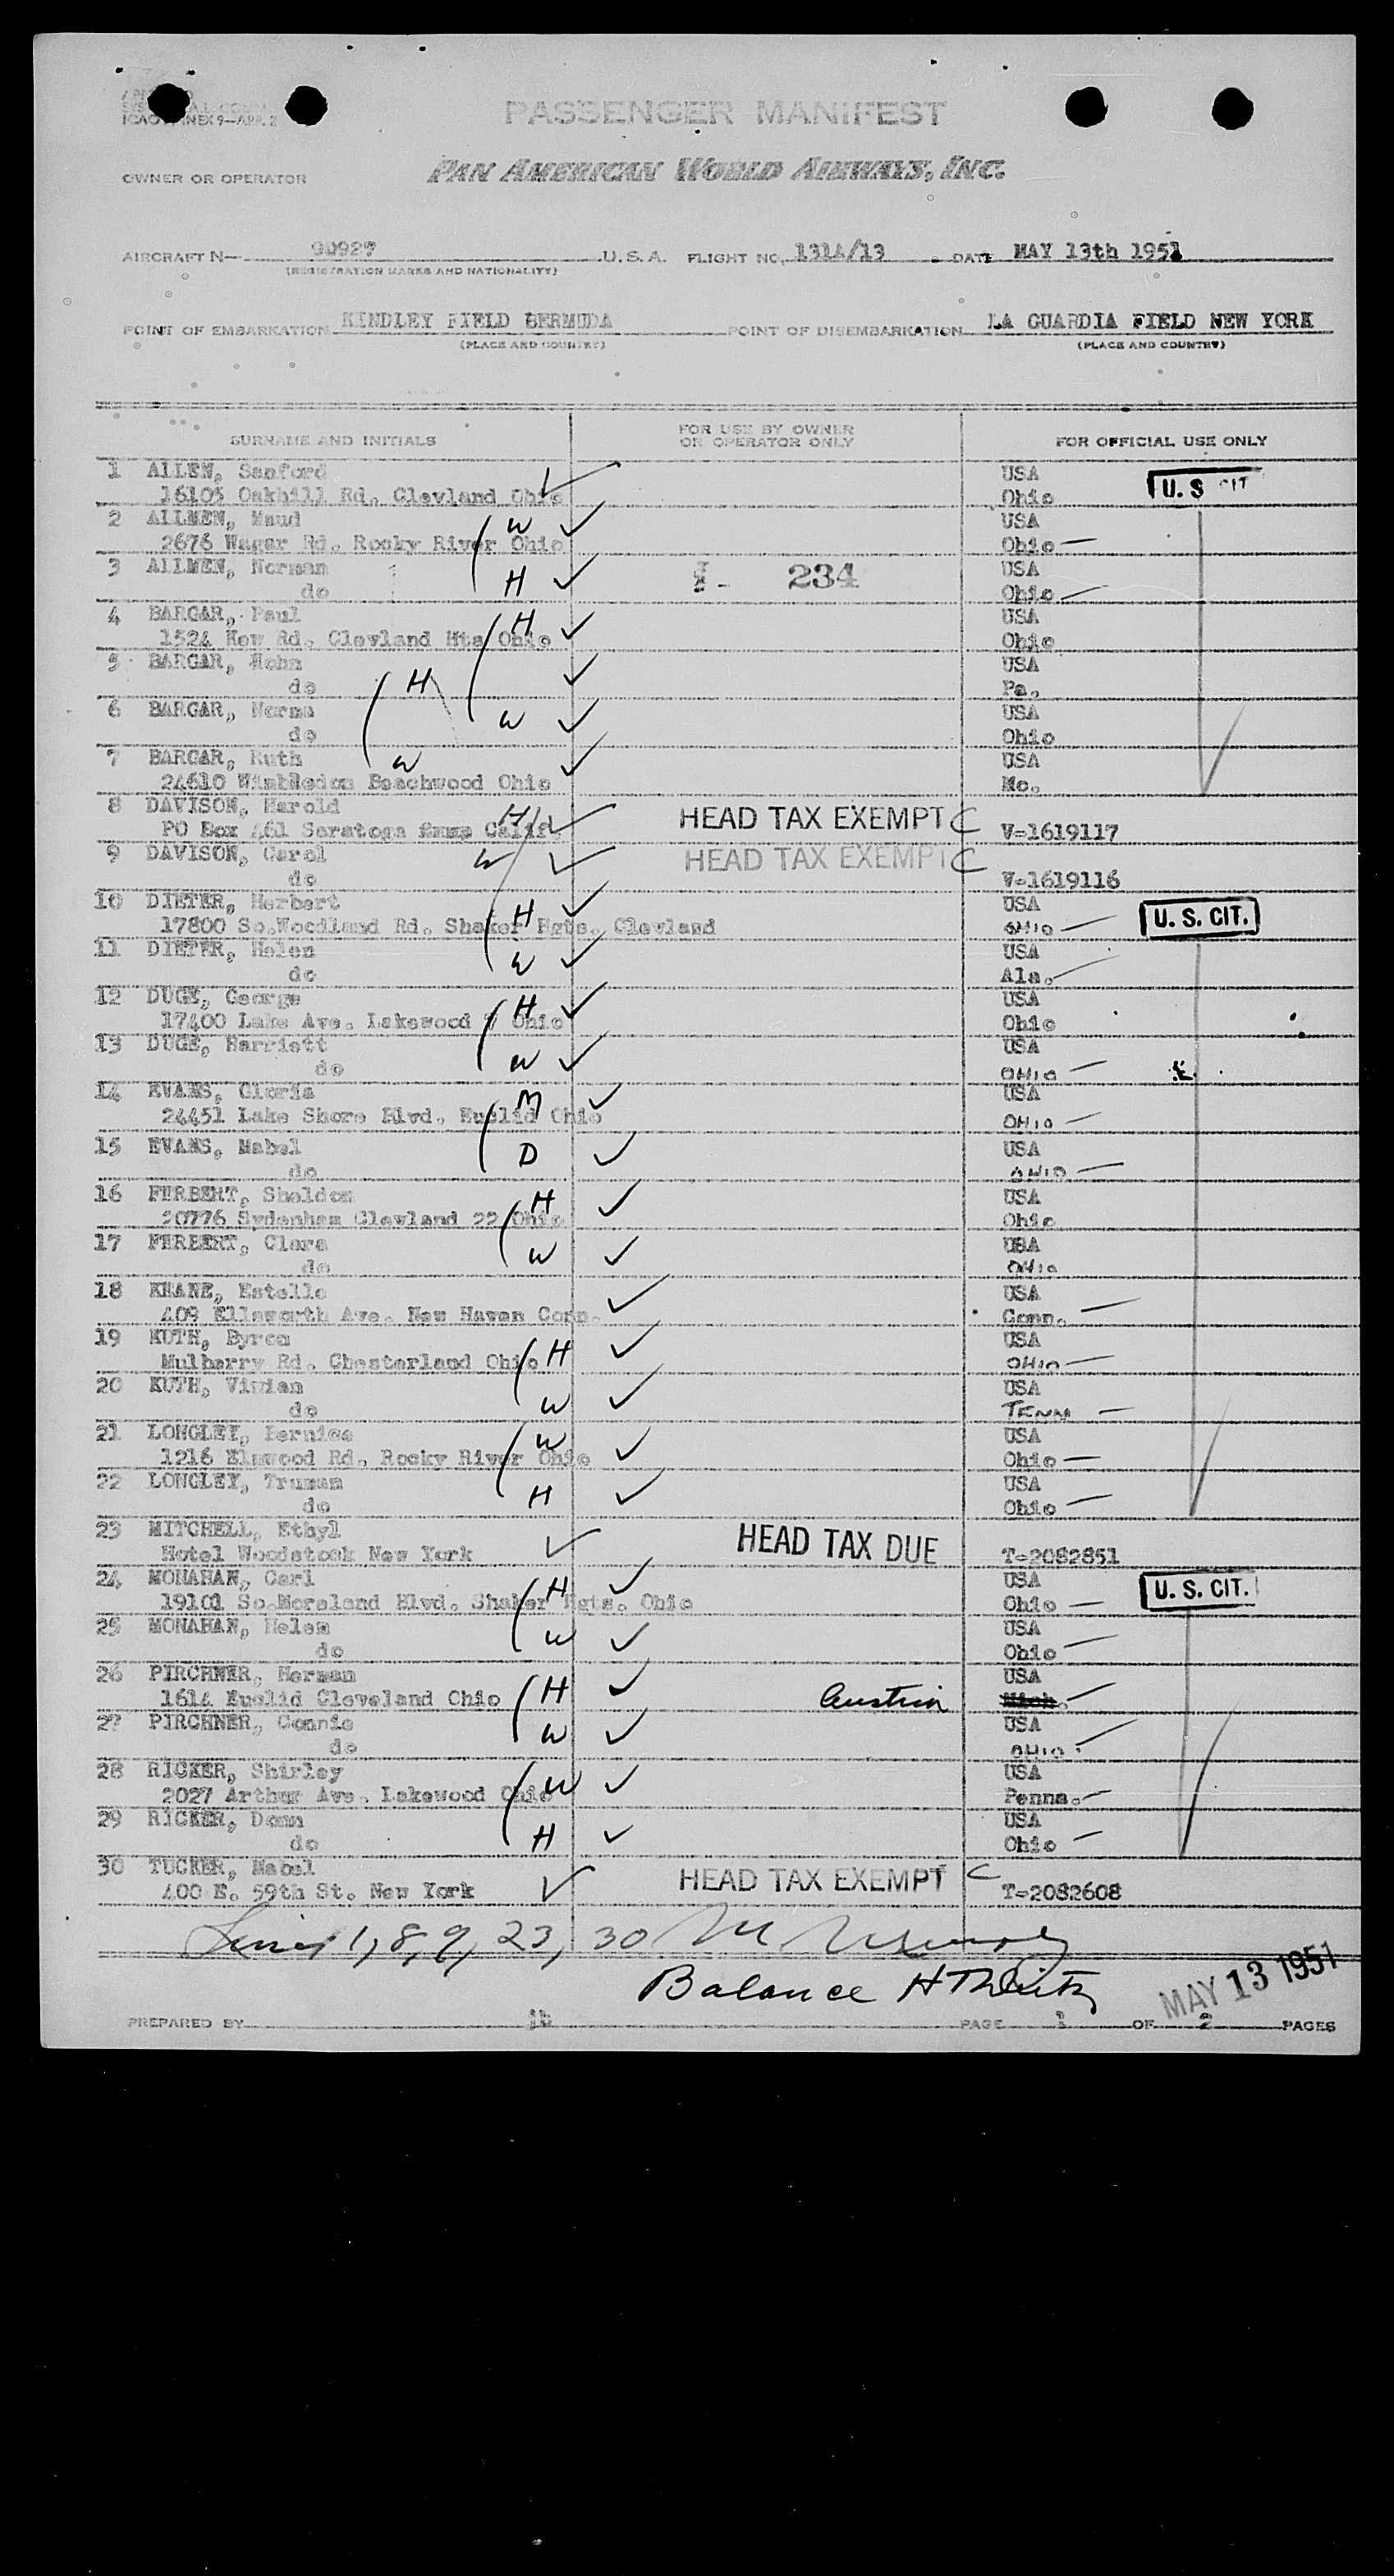 PASSENGER MANIFEST
PAN AMERICAN WORLD AIRWAYS, INC.
OWNER OR OPERATOR
AIRCRAFT N— U.S.A. FLIGHT NO. 131A/13 DATE MAY 13th 1951
(REGISTRATION MARKS AND NATIONALITY)
POINT OF EMBARKATION KINDLEY FIELD BERMUDA POINT OF DISEMBARKATION LA GUARDIA FIELD NEW YORK
(PLACE AND COUNTRY) (PLACE AND COUNTRY)
SURNAME AND INITIALS FOR USE BY OWNER OR OPERATOR ONLY FOR OFFICIAL USE ONLY
1 ALLEN, Sanford USA
16105 Oakhill Rd. Clevland Ohio Ohio U. S CIT
2 ALLMEN, Maud W USA
2676 Wagar Rd. Rocky River Ohio Ohio
3 ALLMEN, Norman 234 USA
do H Ohio
4 BARGAR, Paul H USA
1524 Rd. Clevland Hts Ohio Ohio
5 BARGAR, USA
do H Pa.
6 BARGAR, Norma W USA
do Ohio
7 BARGAR, Ruth W USA
24610 Wimbledon Beachwood Ohio Mo.
8 DAVISON, Harold H HEAD TAX EXEMPT C
PO Box 461 Saratoga Calif. V-1619117
9 DAVISON, Carol W HEAD TAX EXEMPT C
do V-1619116
10 DIETER, Herbert H USA
17800 So.Woodland Rd. Shaker Hgts. Clevland OHIO U. S. CIT.
11 DIETER, Helen W USA
do Ala.
12 DUGE, George H USA
17400 Lake Ave. Lakewood Ohio Ohio
13 DUGE, Harriett W USA
do OHIO
14 EVANS, Gloria M USA
24451 Lake Shore Blvd. Euclid Ohio OHIO
15 EVANS, Mabel D USA
do OHIO
16 FERBERT, Sheldon H USA
20776 Sydenham Clevland 22 Ohio Ohio
17 FERBERT, Clara W USA
do OHIO
18 KEANE, Estelle USA
409 Ellsworth Ave. New Haven Conn. Conn.
19 KUTH, Byron H USA
Mulberry Rd. Chesterland Ohio OHIO
20 KUTH, Vivian W USA
do TENN
21 LONGLEY, Bernice W USA
1216 Elmwood Rd. Rocky River Ohio Ohio
22 LONGLEY, Truman H USA
do Ohio
23 MITCHELL, Ethyl HEAD TAX DUE
Hotel Woodstock New York T-2082851
24 MONAHAN, Carl H USA
19101 So.Moreland Blvd. Shaker Hgts. Ohio Ohio U. S. CIT.
25 MONAHAN, Helen W USA
do Ohio
26 PIRCHNER, Herman H USA
1614 Euclid Cleveland Ohio Austria Mich.
27 PIRCHNER, Connie W USA
do OHIO
28 RICKER, Shirley W USA
2027 Arthur Ave. Lakewood Ohio Penna.
29 RICKER, Donn H USA
do Ohio
30 TUCKER, Mabel HEAD TAX EXEMPT C
400 E. 59th St. New York T-2082608
Lines 1, 8, 9, 23, 30
Balance
MAY 13 1951
PREPARED BY PAGE 1 OF 2 PAGES